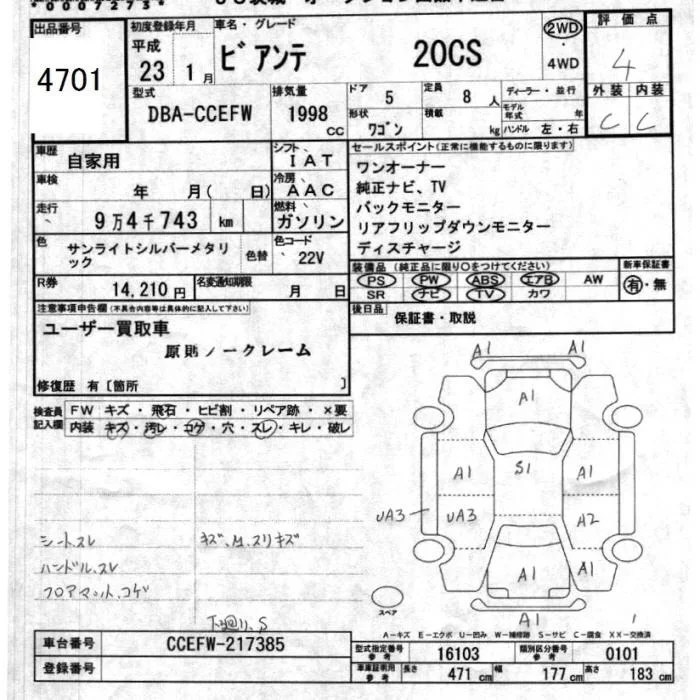 出品番号 4701
初度登録年月 平成 23 1月
車名・グレード ビアンテ 20CS
2WD・4WD
評価点 4
外装 内装
C C
型式 DBA-CCEFW
排気量 1998 CC
ドア 5
定員 8 人
ディーラー・並行
形状 ワゴン
積載 kg
モデル年式 年
ハンドル 左・右
車歴 自家用
シフト IAT
車検 年 月( 日)
冷房 AAC
走行 9万4千743 km
燃料 ガソリン
色 サンライトシルバーメタリック
色替
色コード 22V
R券 14,210円
名変通知期限 月 日
セールスポイント(正常に機能するものに限ります)
ワンオーナー
純正ナビ、TV
バックモニター
リアフリップダウンモニター
ディスチャージ
装備品(純正品に限り○をつけてください)
PS PW ABS エアB AW
SR ナビ TV カワ
新車保証書 有・無
後日品 保証書・取説
注意事項申告欄(不具合内容等は具体的に記入して下さい)
ユーザー買取車
原則ノークレーム
修復歴 有〔箇所 〕
検査員記入欄
FW キズ・飛石・ヒビ割・リペア跡・×要
内装 キズ・汚レ・コゲ・穴・スレ・キレ・破レ
シートスレ キズ、M、スリキズ
ハンドル、スレ
フロアマット、コゲ
下廻リ、S
A1 A1
A1
A1 S1 A1
UA3 UA3 A2
A1 A1 A1
A1
スペア
A－キズ E－エクボ U－凹み W－補修跡 S－サビ C－腐食 XX－交換済
車台番号 CCEFW-217385
登録番号
型式指定番号 参考 16103
類別区分番号 参考 0101
車車証明用 参考 長さ 471 cm 幅 177 cm 高さ 183 cm